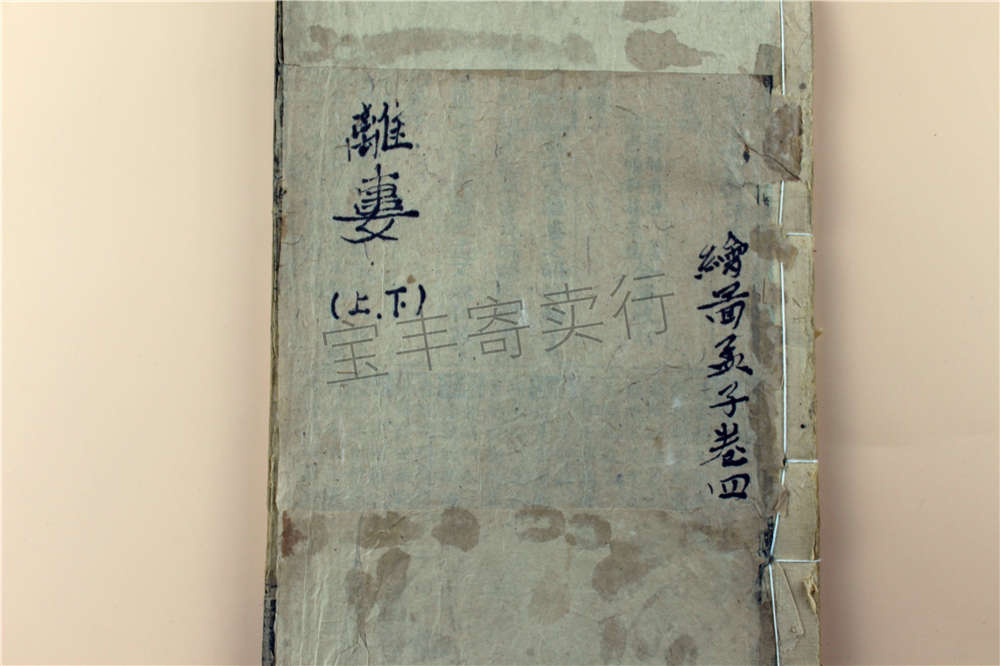 繪圖孟子卷四
離婁
(上.下)
宝丰寄卖行